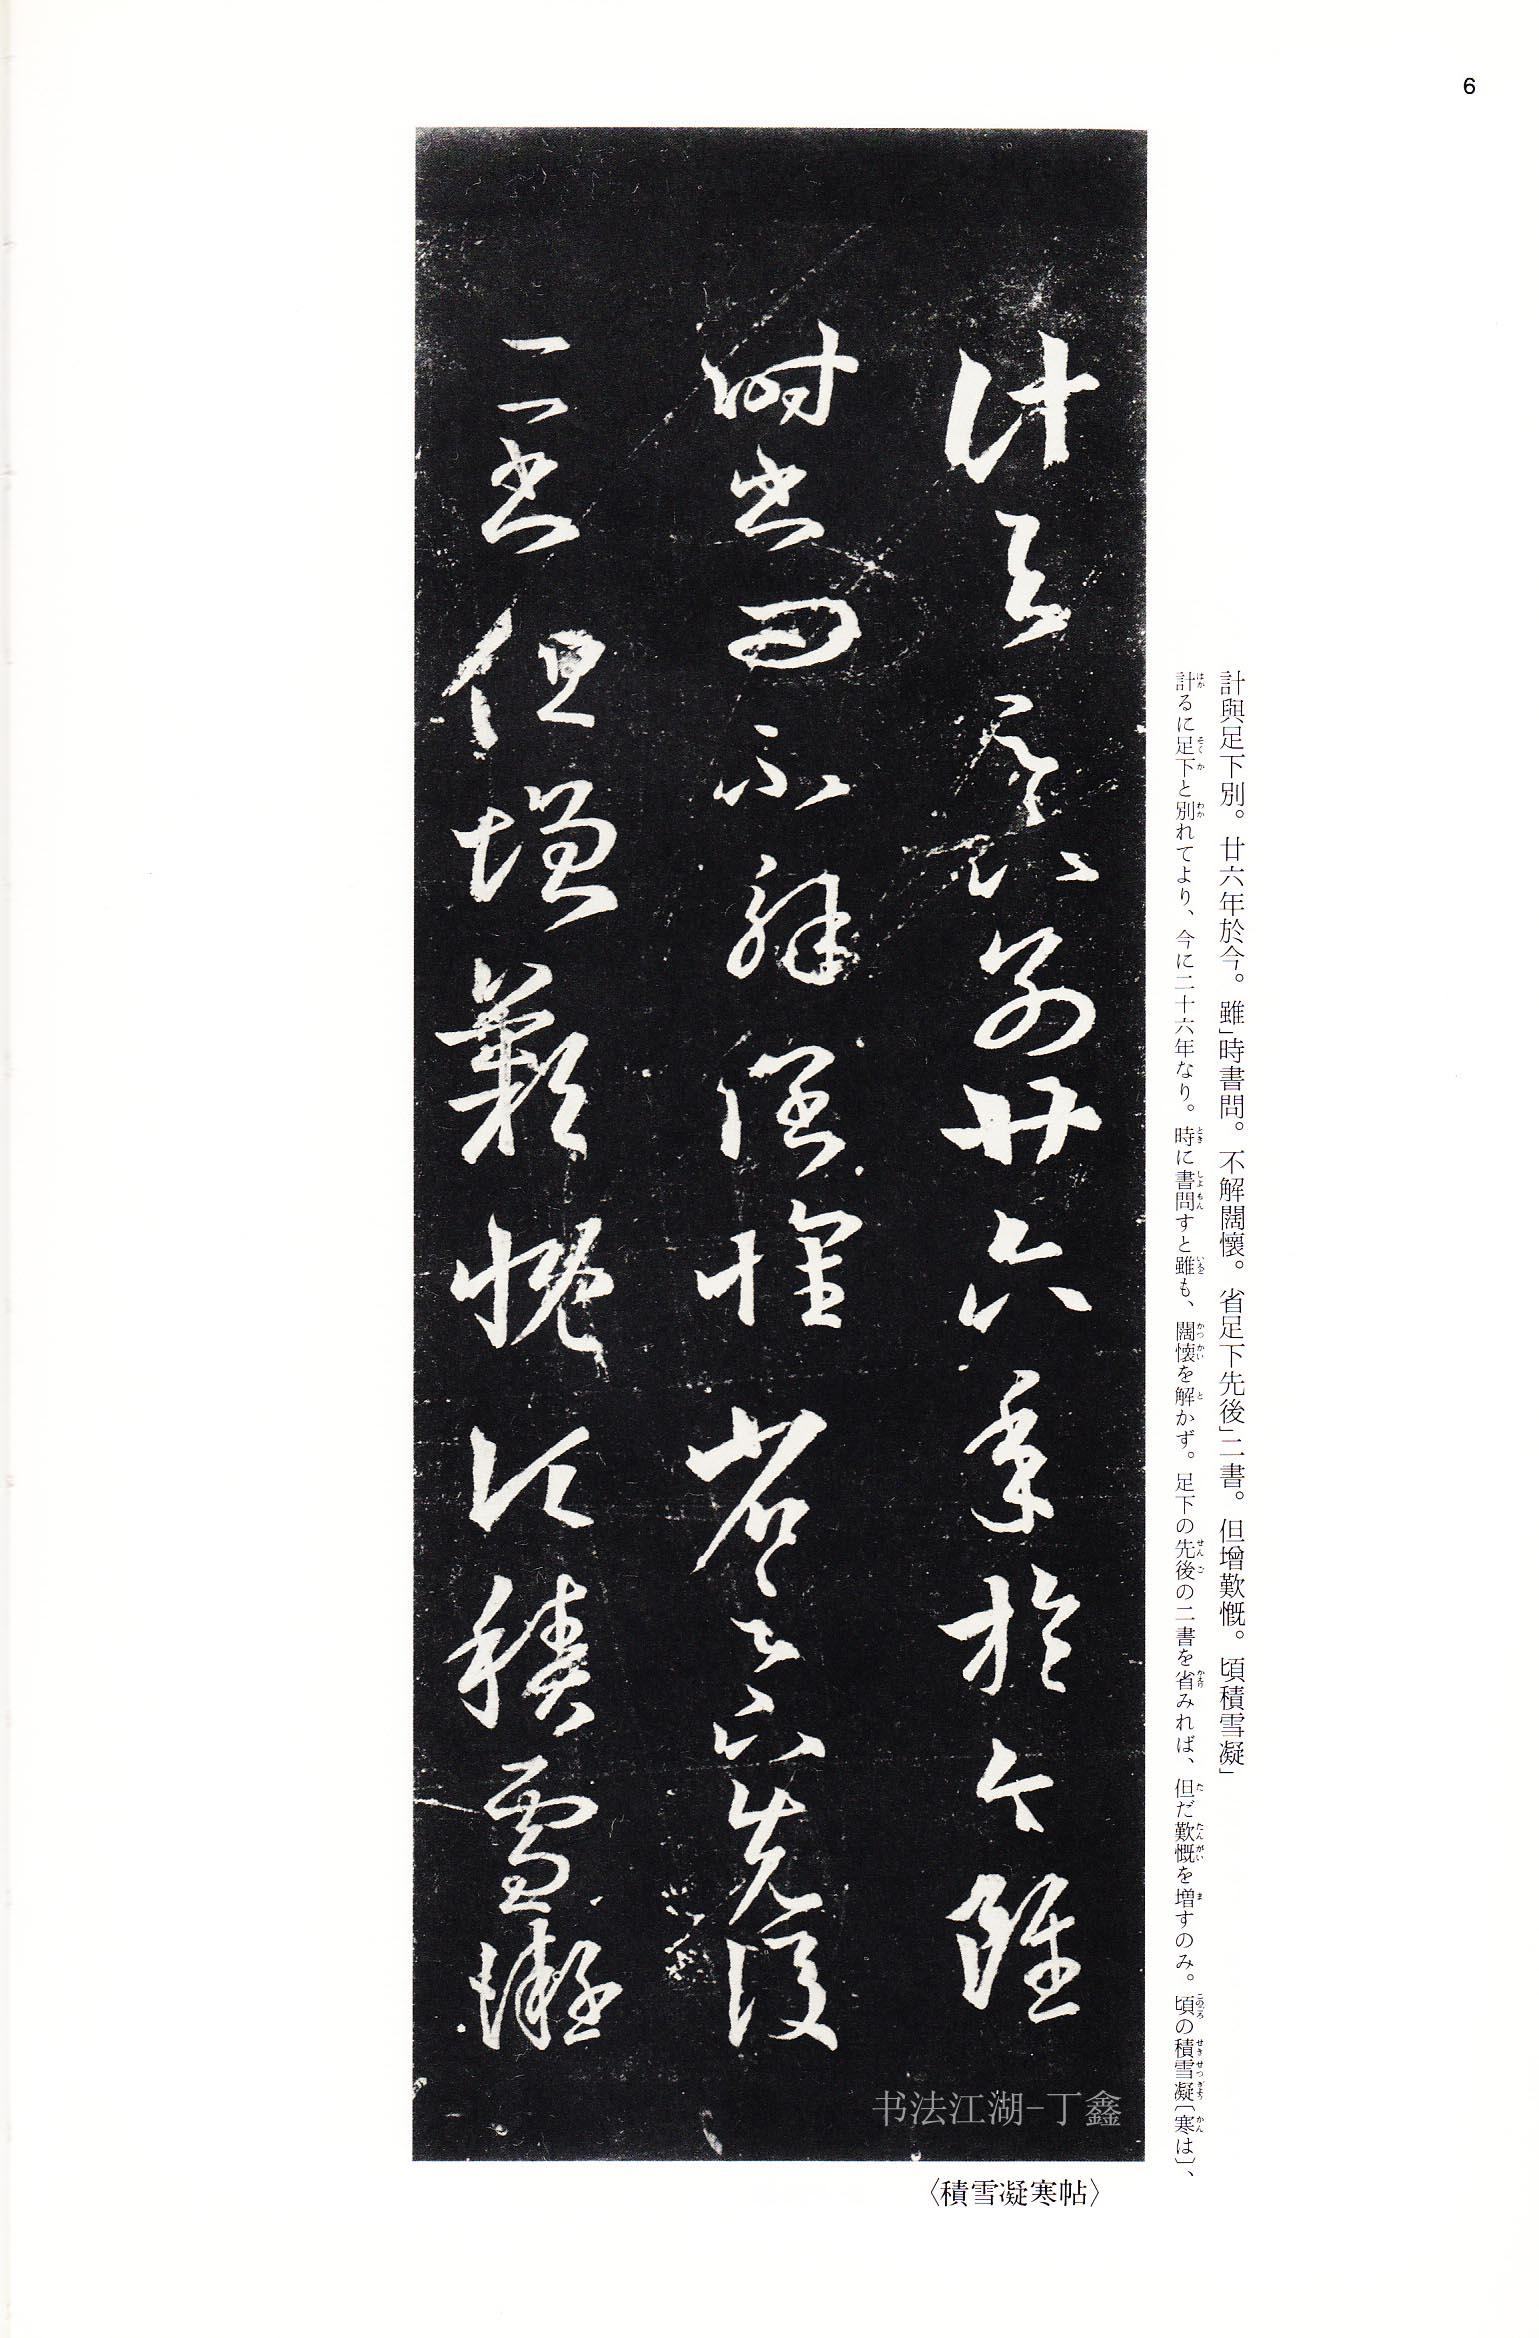 6
計與足下別。廿六年於今。雖」時書問。不解闊懷。省足下先後」二書。但增歎慨。頃積雪凝」
計るに足下と別れてより、今に二十六年なり。時に書問すと雖も、闊懐を解かず。足下の先後の二書を省みれば、但だ歎慨を増すのみ。頃の積雪凝〔寒は〕、
計與足下別廿六年於今雖
時書問不解闊懷省足下先後
二書但增歎慨頃積雪凝
书法江湖-丁鑫
〈積雪凝寒帖〉